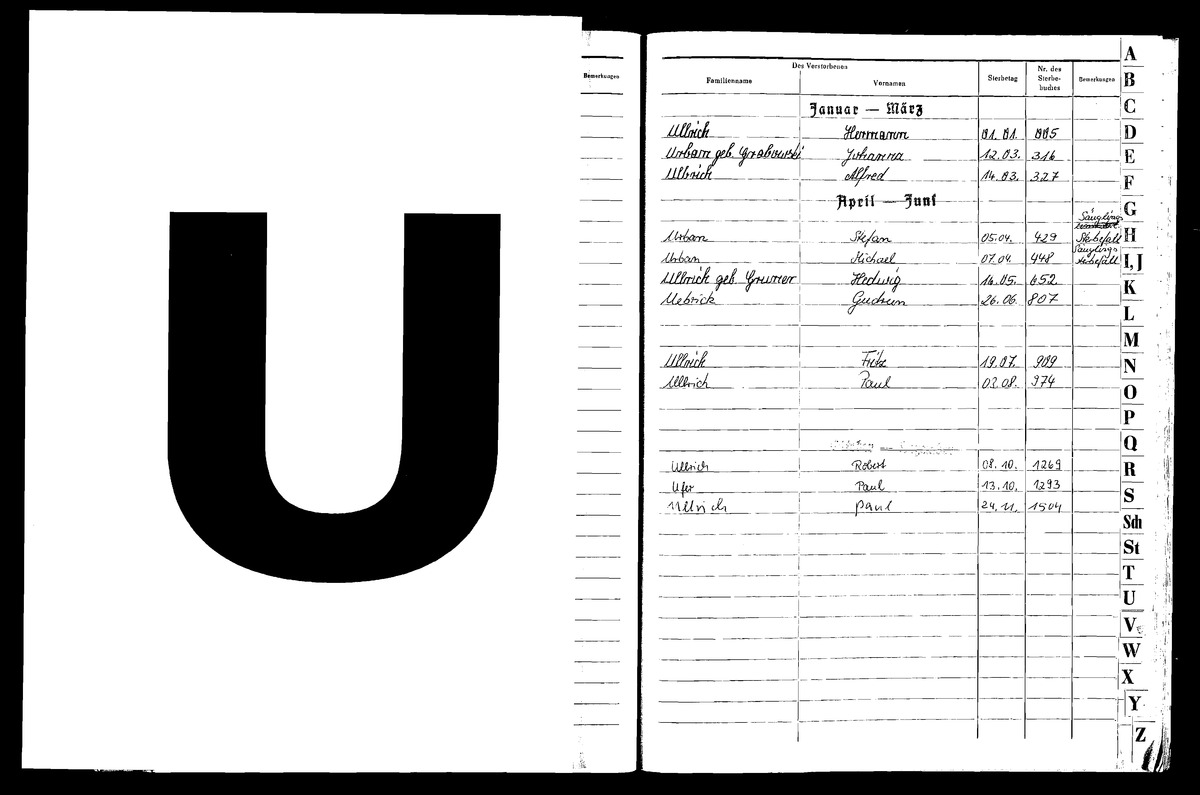 U
Bemerkungen
Des Verstorbenen
Familienname Vornamen Sterbetag Nr. des Sterbe-buches Bemerkungen
Januar — März
Ullrich Hermann 01.01. 005
Urban geb. Grabowski Johanna 12.03. 316
Ullrich Alfred 14.03. 327
April — Juni
Urban Stefan 05.04. 429 Säuglings Sterbefall
Urban Michael 07.04. 448 Säuglings sterbefall
Ullrich geb. Gruner Hedwig 14.05. 652
Uebrick Gudrun 26.06. 807
Ullrich Fritz 19.07. 909
Ullrich Paul 03.08. 974
Ullrich Robert 08.10. 1269
Ufer Paul 13.10. 1293
Ullrich Paul 24.11. 1504
A
B
C
D
E
F
G
H
I, J
K
L
M
N
O
P
Q
R
S
Sch
St
T
U
V
W
X
Y
Z